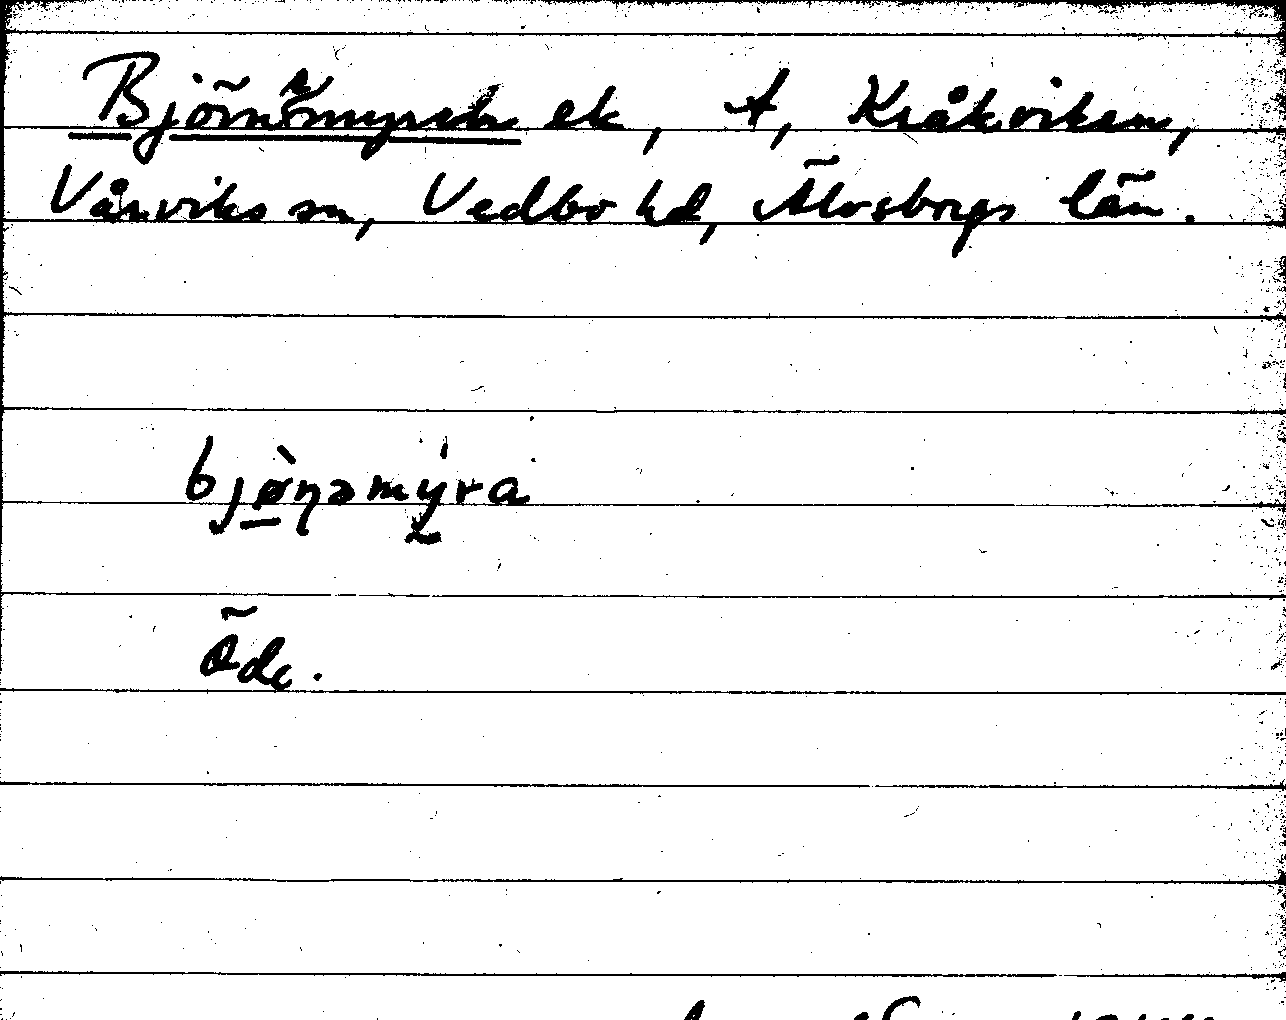 Björnömyren ek, t, Kråkviken,
Vårviks sn, Vedbo hd, Älvsborgs län.
bjø̀ṇamýra
Öde.